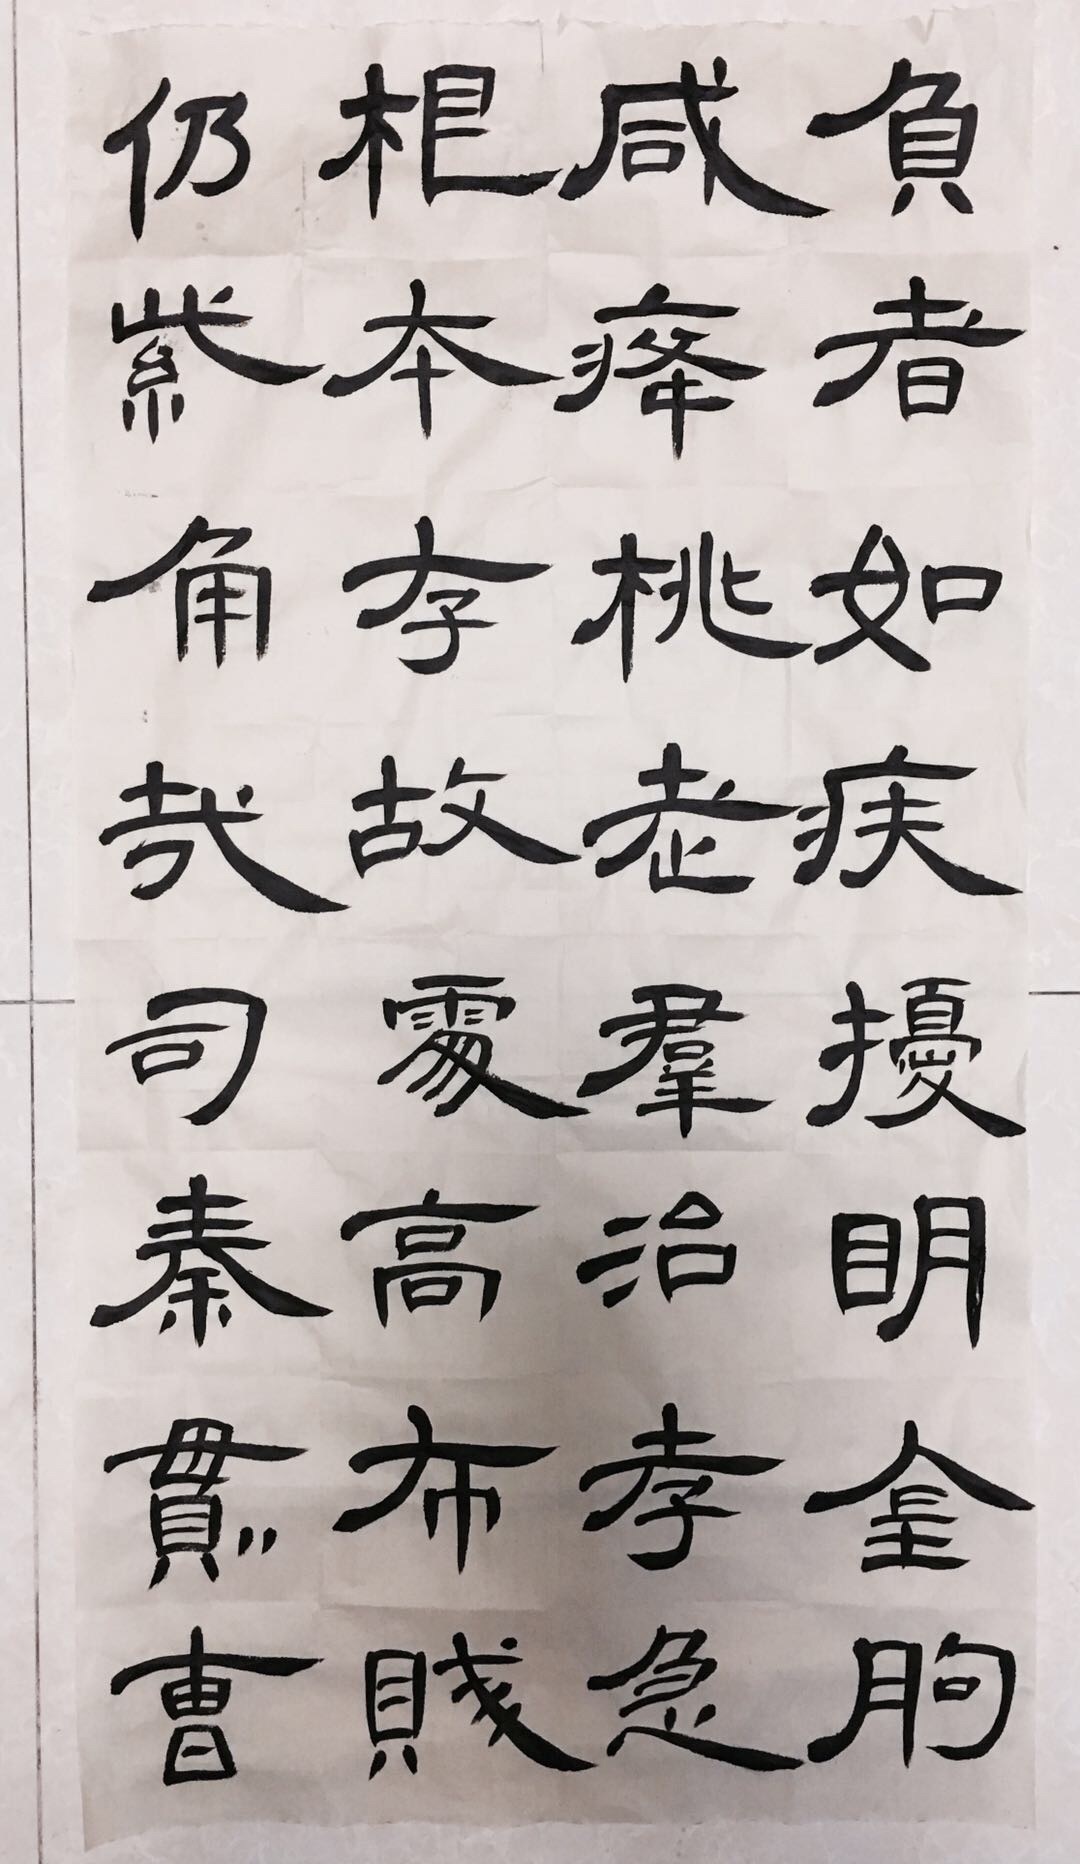 負者如疾擾明全朐
咸瘁桃老羣治孝急
柤本存故処高布賤
仍紫角哉司秦貫曹